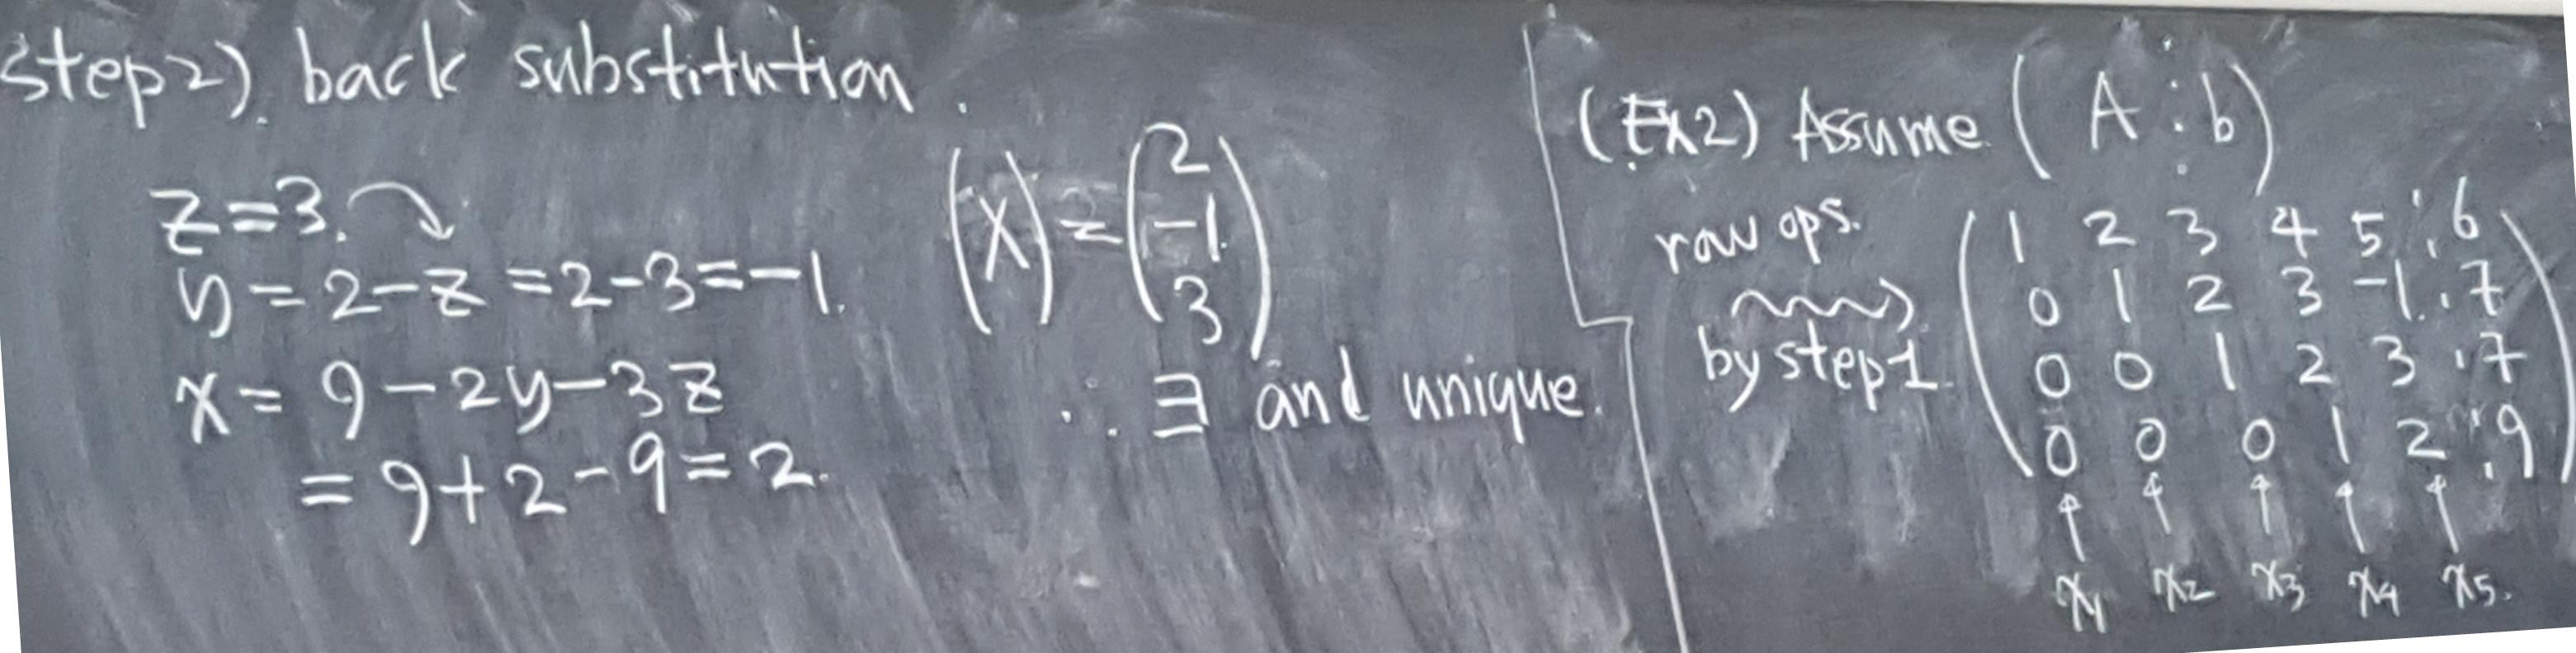 step2). back substitution.
z=3.
y=2-z=2-3=-1.
x=9-2y-3z
=9+2-9=2.
(x)=(2
-1.
3)
∴ ∃ and unique.
(Ex2) Assume (A ⋮ b)
row ops.
by step1.
(1 2 3 4 5 ⋮ 6
0 1 2 3 -1 ⋮ 7
0 0 1 2 3 ⋮ 7
0 0 0 1 2 ⋮ 9)
↑ ↑ ↑ ↑ ↑
x1 x2 x3 x4 x5.